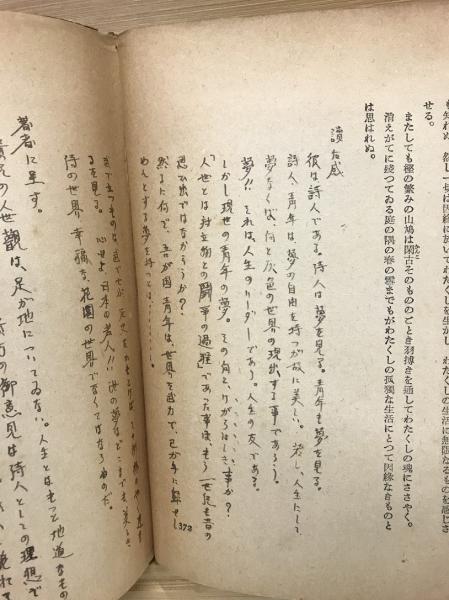 も知れぬ 然し一切は因縁に於いてわたくしを生かし わたくしの生活に無限なるものを感じさ
せる。
またしても樫の繁みの山鳩は閑古そのもののごとき羽搏きを通してわたくしの魂にささやく。
消えがてに残つてゐる庭の隅の春の雪までもがわたくしの孤独な生活にとつて因縁なきものと
は思はれぬ。
読右感
彼は詩人である。詩人は夢を見る。青年も夢を見る。
詩人、青年は、夢の自由を持つが故に美しい。若し、人生にして
夢なくば、何と灰色の世界の現出する事であろう。
夢!!それは人生のリーダーである。人生の友である。
しかし現世の青年の夢。その何と、けがらはしき事か?
「人世とは対立物との闘争の過程」であった事は、もう一世紀も昔の
思ひ出ではなからうか?
然るに何ぞ、吾が国青年は、世界を武力で、己が手に
めんとする夢を持つとは
を見る。 心せよ日本の若人!!
詩の世界、幸福な、花園の世界でなくてはならぬのだ。
373
著者に呈す。
貴兄の人世観は、足が地についてゐない。人生とはもっと地道なもの
御意見は詩人としての理想で